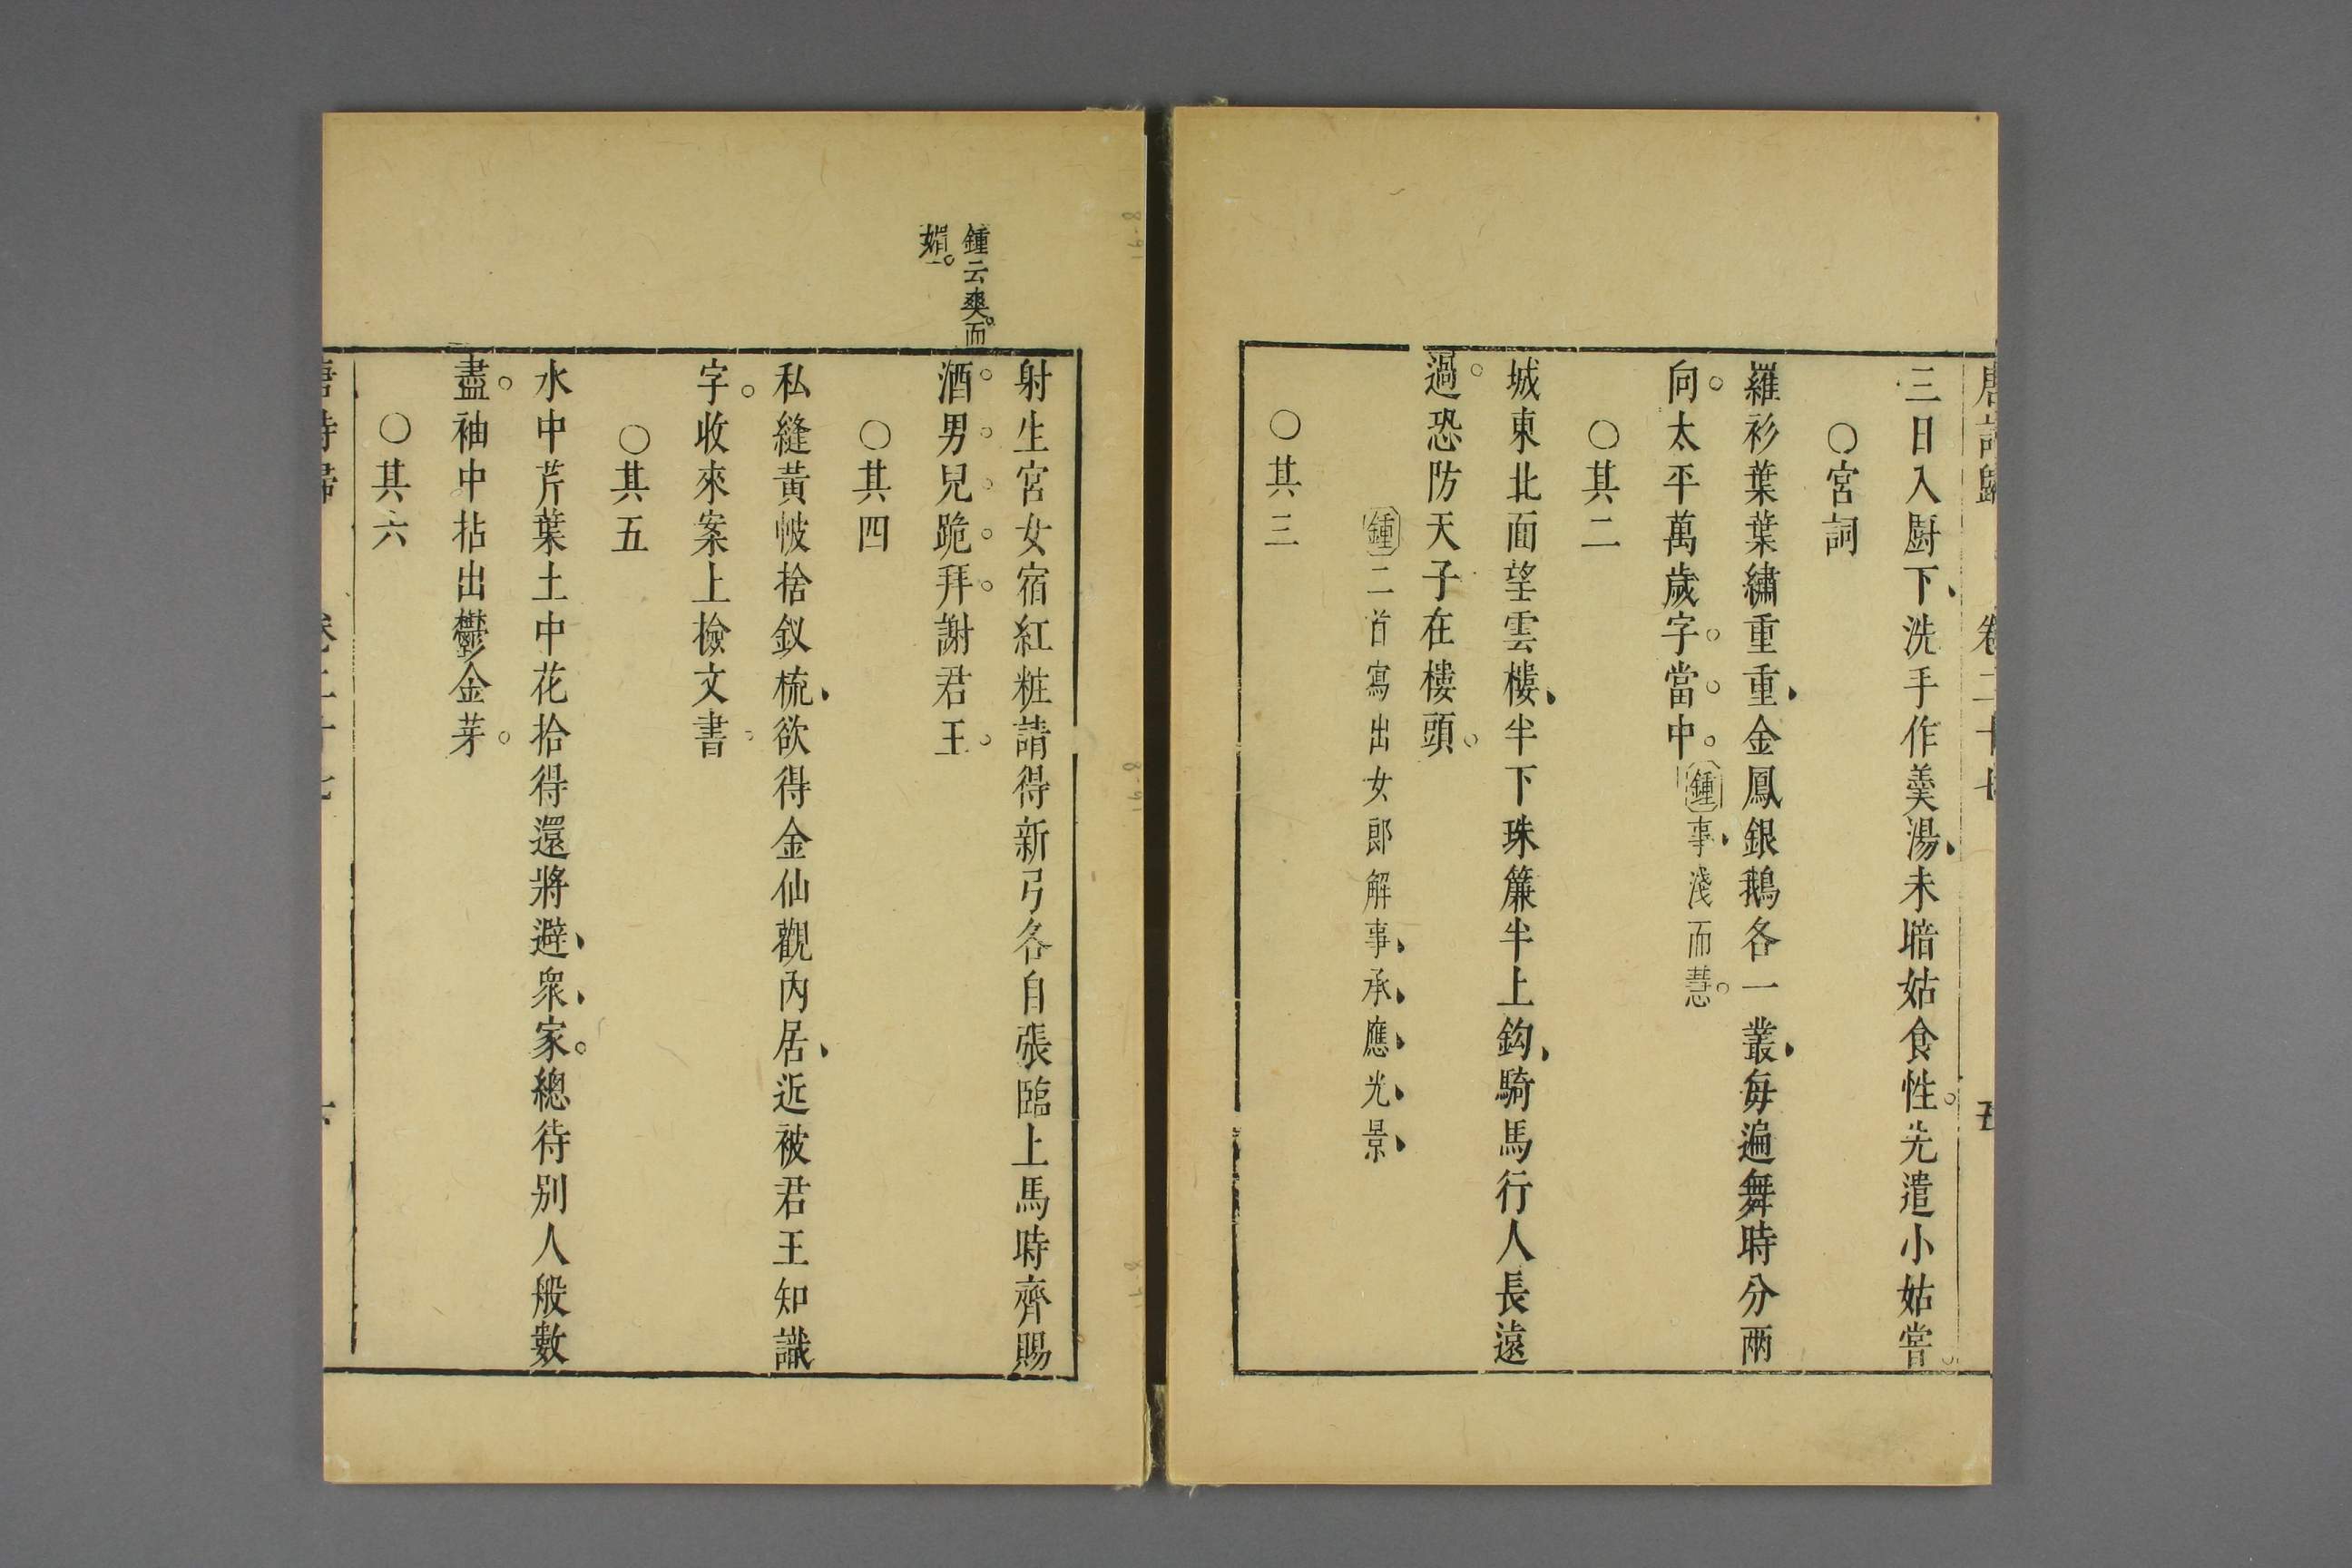 唐詩歸 卷二十七 五
三日入厨下洗手作羹湯未暗姑食性先遣小姑嘗
○宮詞
羅衫葉葉繡重重金鳳銀鵝各一叢每遍舞時分兩
向太平萬歲字當中鍾事淺而慧
○其二
城東北面望雲樓半下珠簾半上鈎騎馬行人長遠
過恐防天子在樓頭
鍾二首寫出女郎解事承應光景
○其三
鍾云爽而
娟
射生宮女宿紅粧請得新弓各自張臨上馬時齊賜
酒男兒跪拜謝君王
○其四
私縫黃帔捨釵梳欲得金仙觀內居近被君王知識
字收來案上檢文書
○其五
水中芹葉土中花拾得還將避衆家總待別人般數
盡袖中拈出鬱金芽
○其六
唐詩歸 卷二十七